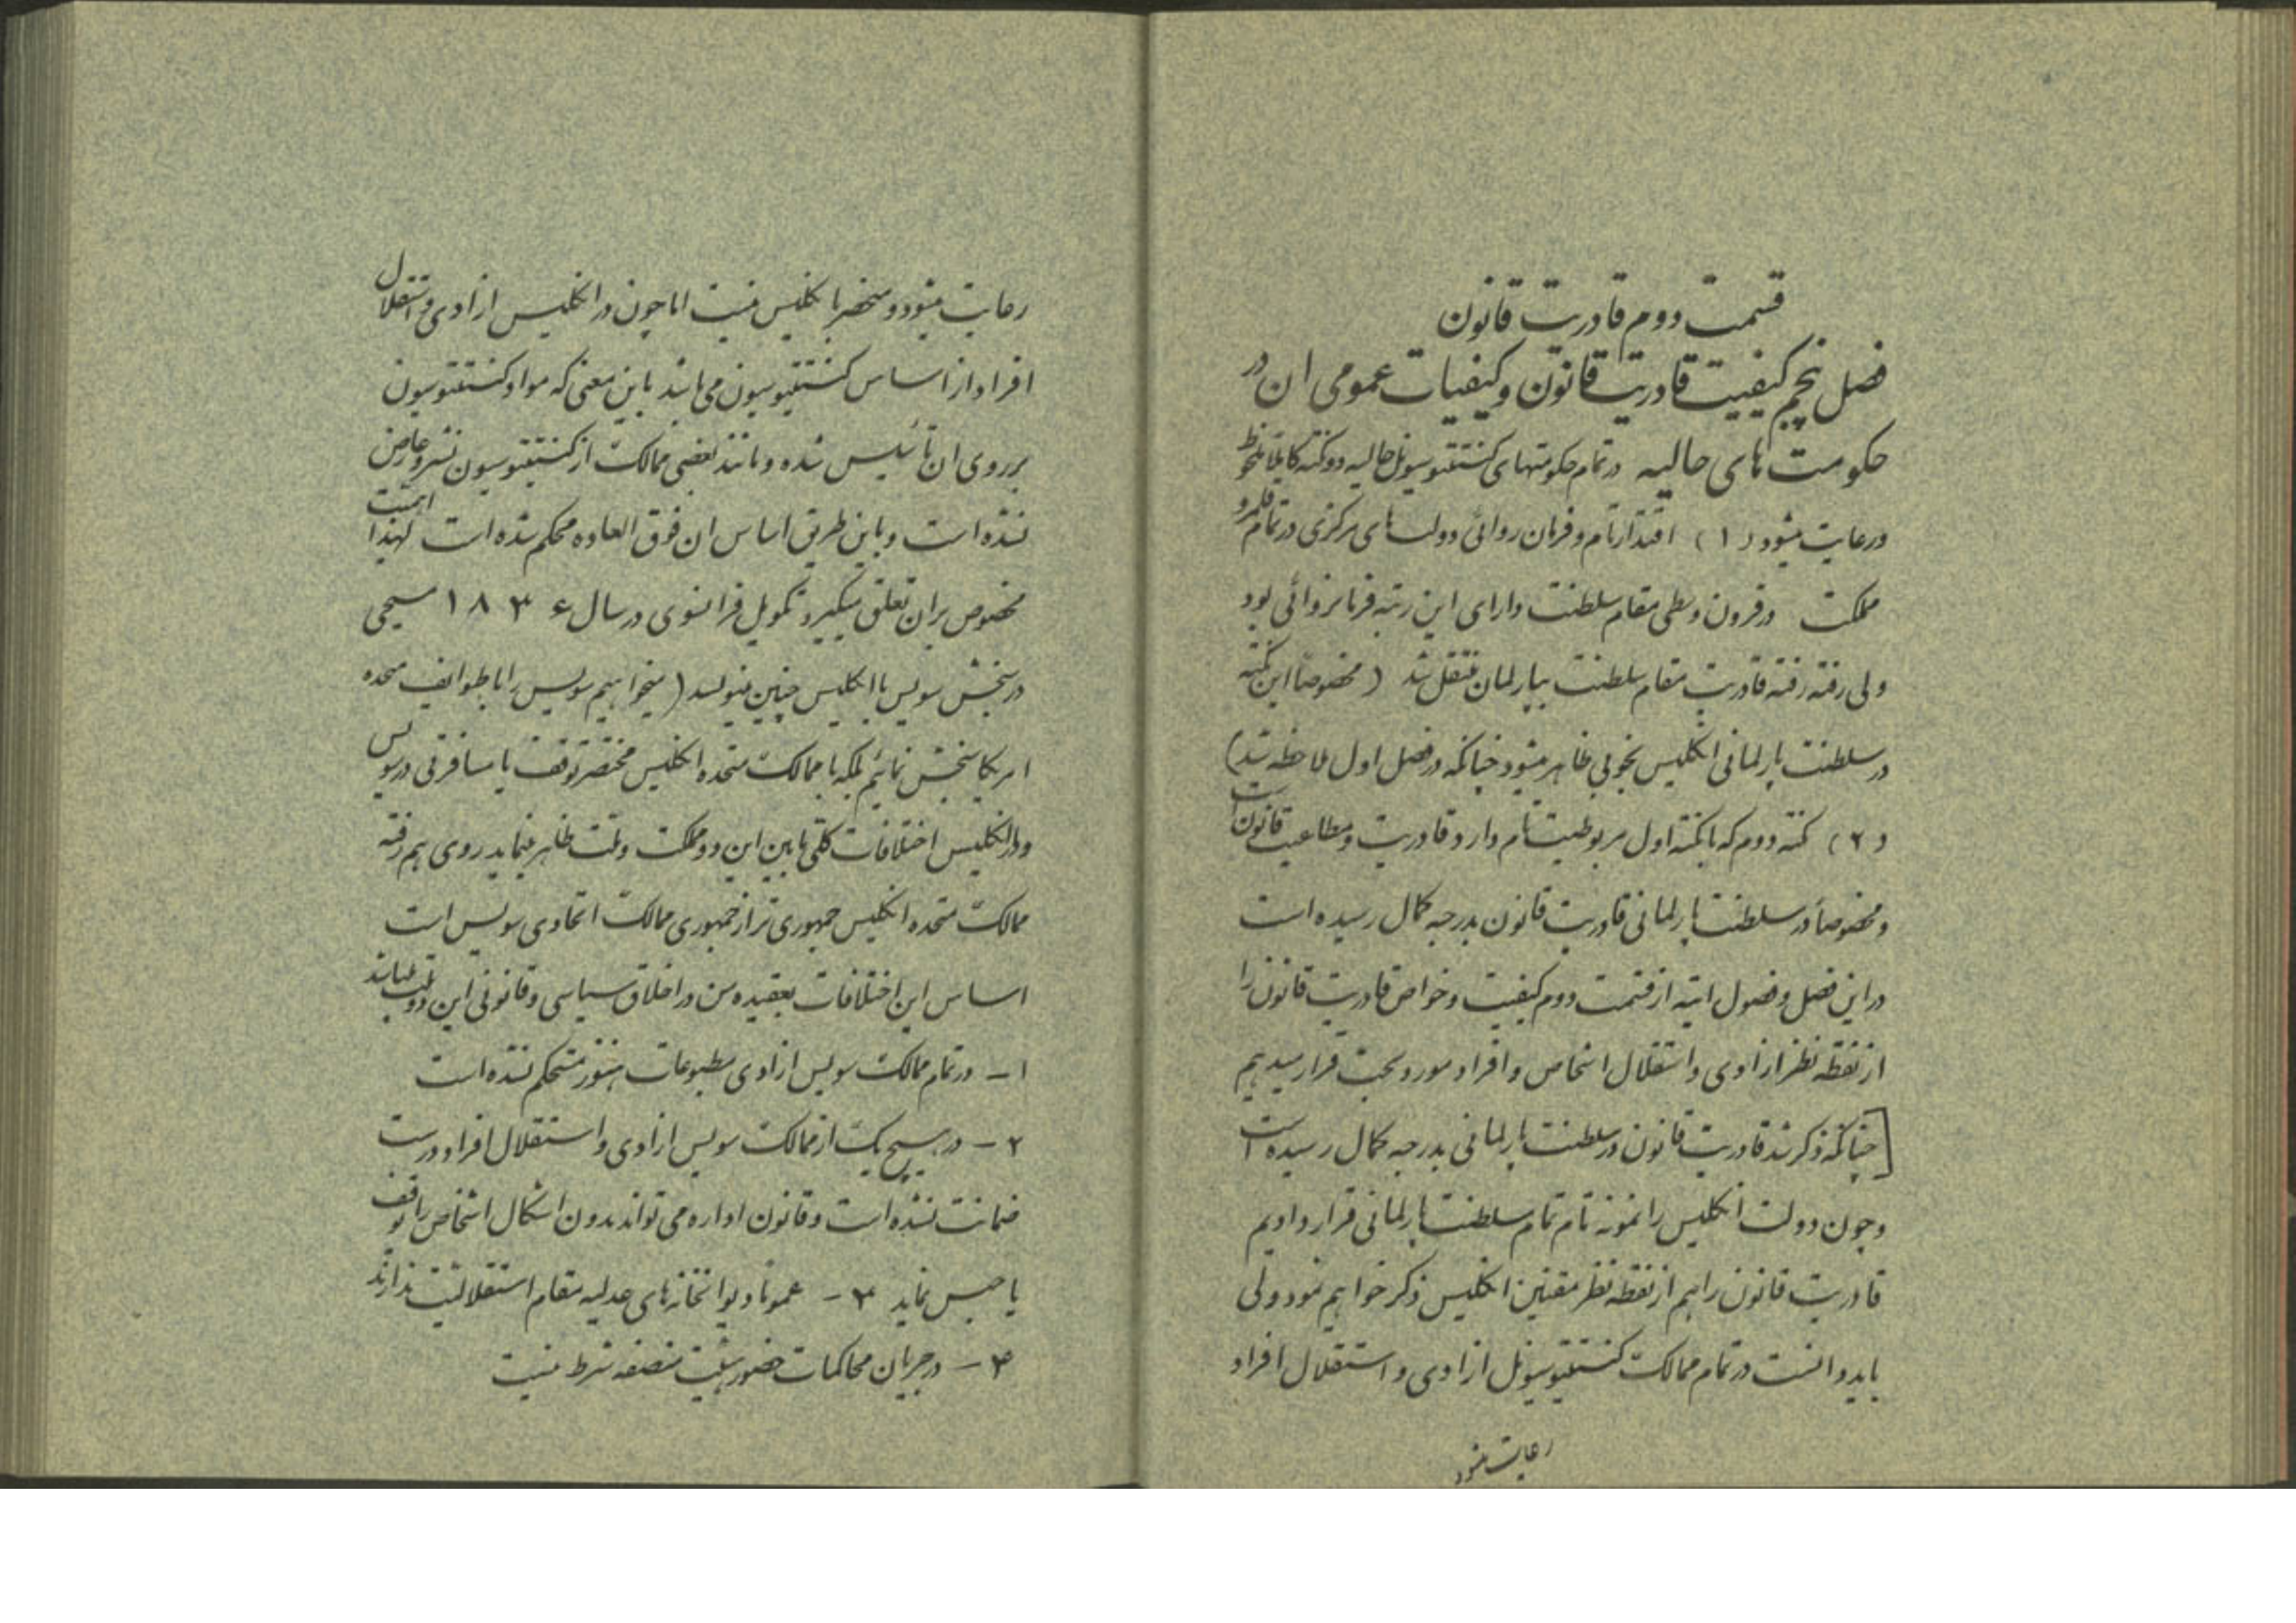 قسمت دوم قادریت قانون
فصل پنجم کیفیت قادریت قانون و کیفیات عمومی ان در
حکومت های حالیه در تمام حکومتهای کنستتیوسیونل حالیه دو نکته کاملا ملحوظ
و رعایت میشود (۱) اقتدار تام و فرمان روائی دولت های مرکزی در تمام قلمرو
مملکت در قرون وسطی مقام سلطنت دارای این رتبه فرمانروائی بود
ولی رفته رفته قادریت مقام سلطنت بپارلمان منتقل شد (مخصوصاً این نکته
در سلطنت پارلمانی انگلیس بخوبی ظاهر میشود چنانکه در فصل اول ملاحظه شد)
(۲) نکته دوم که با نکته اول مربوطیت تام دارد قادریت و مطاعیت قانون است
و مخصوصاً در سلطنت پارلمانی قادریت قانون بدرجه کمال رسیده است
در این فصل و فصول اتیه از قسمت دوم کیفیت و خواص قادریت قانون را
از نقطه نظر ازادی و استقلال اشخاص و افراد مورد بحث قرار میدهیم
[چنانکه ذکر شد قادریت قانون در سلطنت پارلمانی بدرجه کمال رسیده است
و چون دولت انگلیس را نمونه تام تمام سلطنت پارلمانی قرار دادیم
قادریت قانون را هم از نقطه نظر مقننین انگلیس ذکر خواهیم نمود ولی
باید دانست در تمام ممالک کنستتیوسیونل ازادی و استقلال افراد
رعایت میشود
رعایت میشود و منحصر بانگلیس نیست اما چون در انگلیس ازادی و استقلال
افراد از اساس کنستتیوسیون می باشد باین معنی که مواد کنستتیوسیون
بر روی ان تأسیس شده و مانند بعضی ممالک از کنستتیوسیون نشر و عارض
نشده است و باین طریق اساس ان فوق العاده محکم شده است لهذا اهمیت
مخصوص بران تعلق میگیرد تکویل فرانسوی در سال ۱۸۳۶ مسیحی
در سنجش سویس با انگلیس چنین مینویسد (میخواهیم سویس را با طوایف متحده
امریکا سنجش نمائیم بلکه با ممالک متحده انگلیس مختصر توقف یا مسافرتی در سویس
و در انگلیس اختلافات کلی مابین این دو مملکت و ملت ظاهر مینماید روی هم رفته
ممالک متحده انگلیس جمهوری تر از جمهوری ممالک اتحادی سویس است
اساس این اختلافات بعقیده من در اخلاق سیاسی و قانونی این دو ملت میباشد
۱ - در تمام ممالک سویس ازادی مطبوعات هنوز مستحکم نشده است
۲ - در هیچ یک از ممالک سویس ازادی و استقلال افراد درست
ضمانت نشده است و قانون اداره می تواند بدون اشکال اشخاص را توقیف
یا حبس نماید ۳ - عموماً دیوانخانه های عدلیه مقام استقلالیت ندارند
۴ - در جریان محاکمات حضور هیئت منصفه شرط نیست